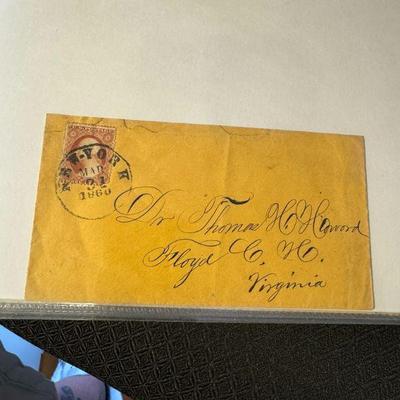 NEW-YORK
MAR
31
1860
Dr Thomas H Howard
Floyd C. H.
Virginia